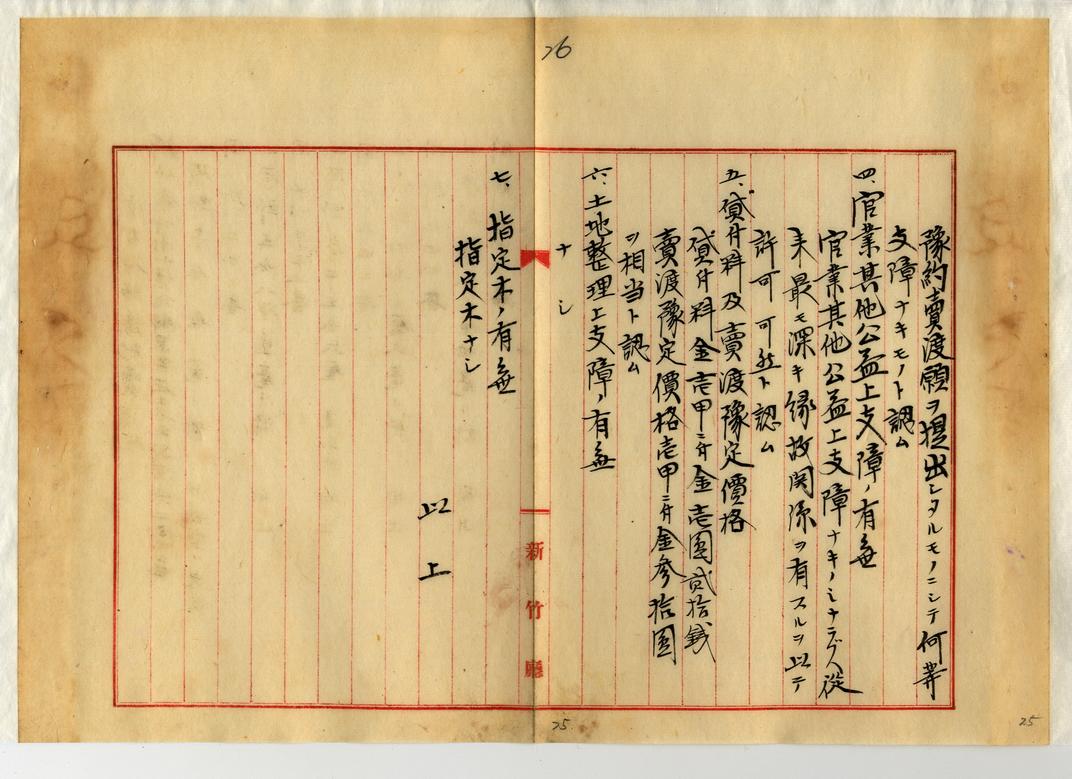 26
豫約賣渡願ヲ提出シタルモノニシテ何等
支障ナキモノト認ム
四、官業其他公益上支障ノ有無
官業其他公益上支障ナキノミナラズ従
来最モ深キ縁故関係ヲ有スルヲ以テ
許可可然ト認ム
五、貸付料及賣渡豫定價格
貸付料金壱甲ニ付金壱圓貳拾銭
賣渡豫定價格壱甲ニ付金参拾圓
ヲ相当ト認ム
六、土地整理上支障ノ有無
ナシ
新竹廳
七、指定木ノ有無
指定木ナシ
以上
25
25